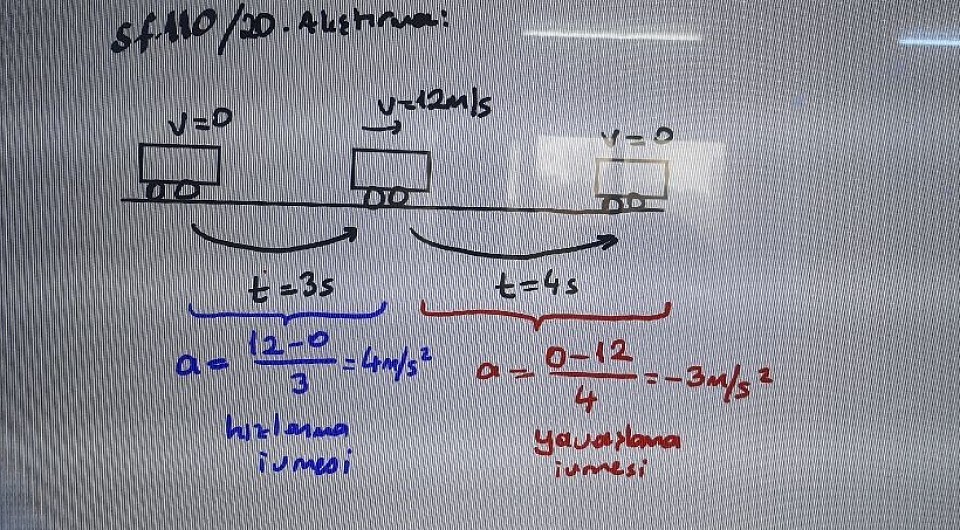 sf.110/20. Alıştırma:
v=0
v=12m/s
v=0
t=3s
t=4s
a = 12-0 / 3 = 4m/s²
hızlanma
ivmesi
a = 0-12 / 4 = -3m/s²
yavaşlama
ivmesi